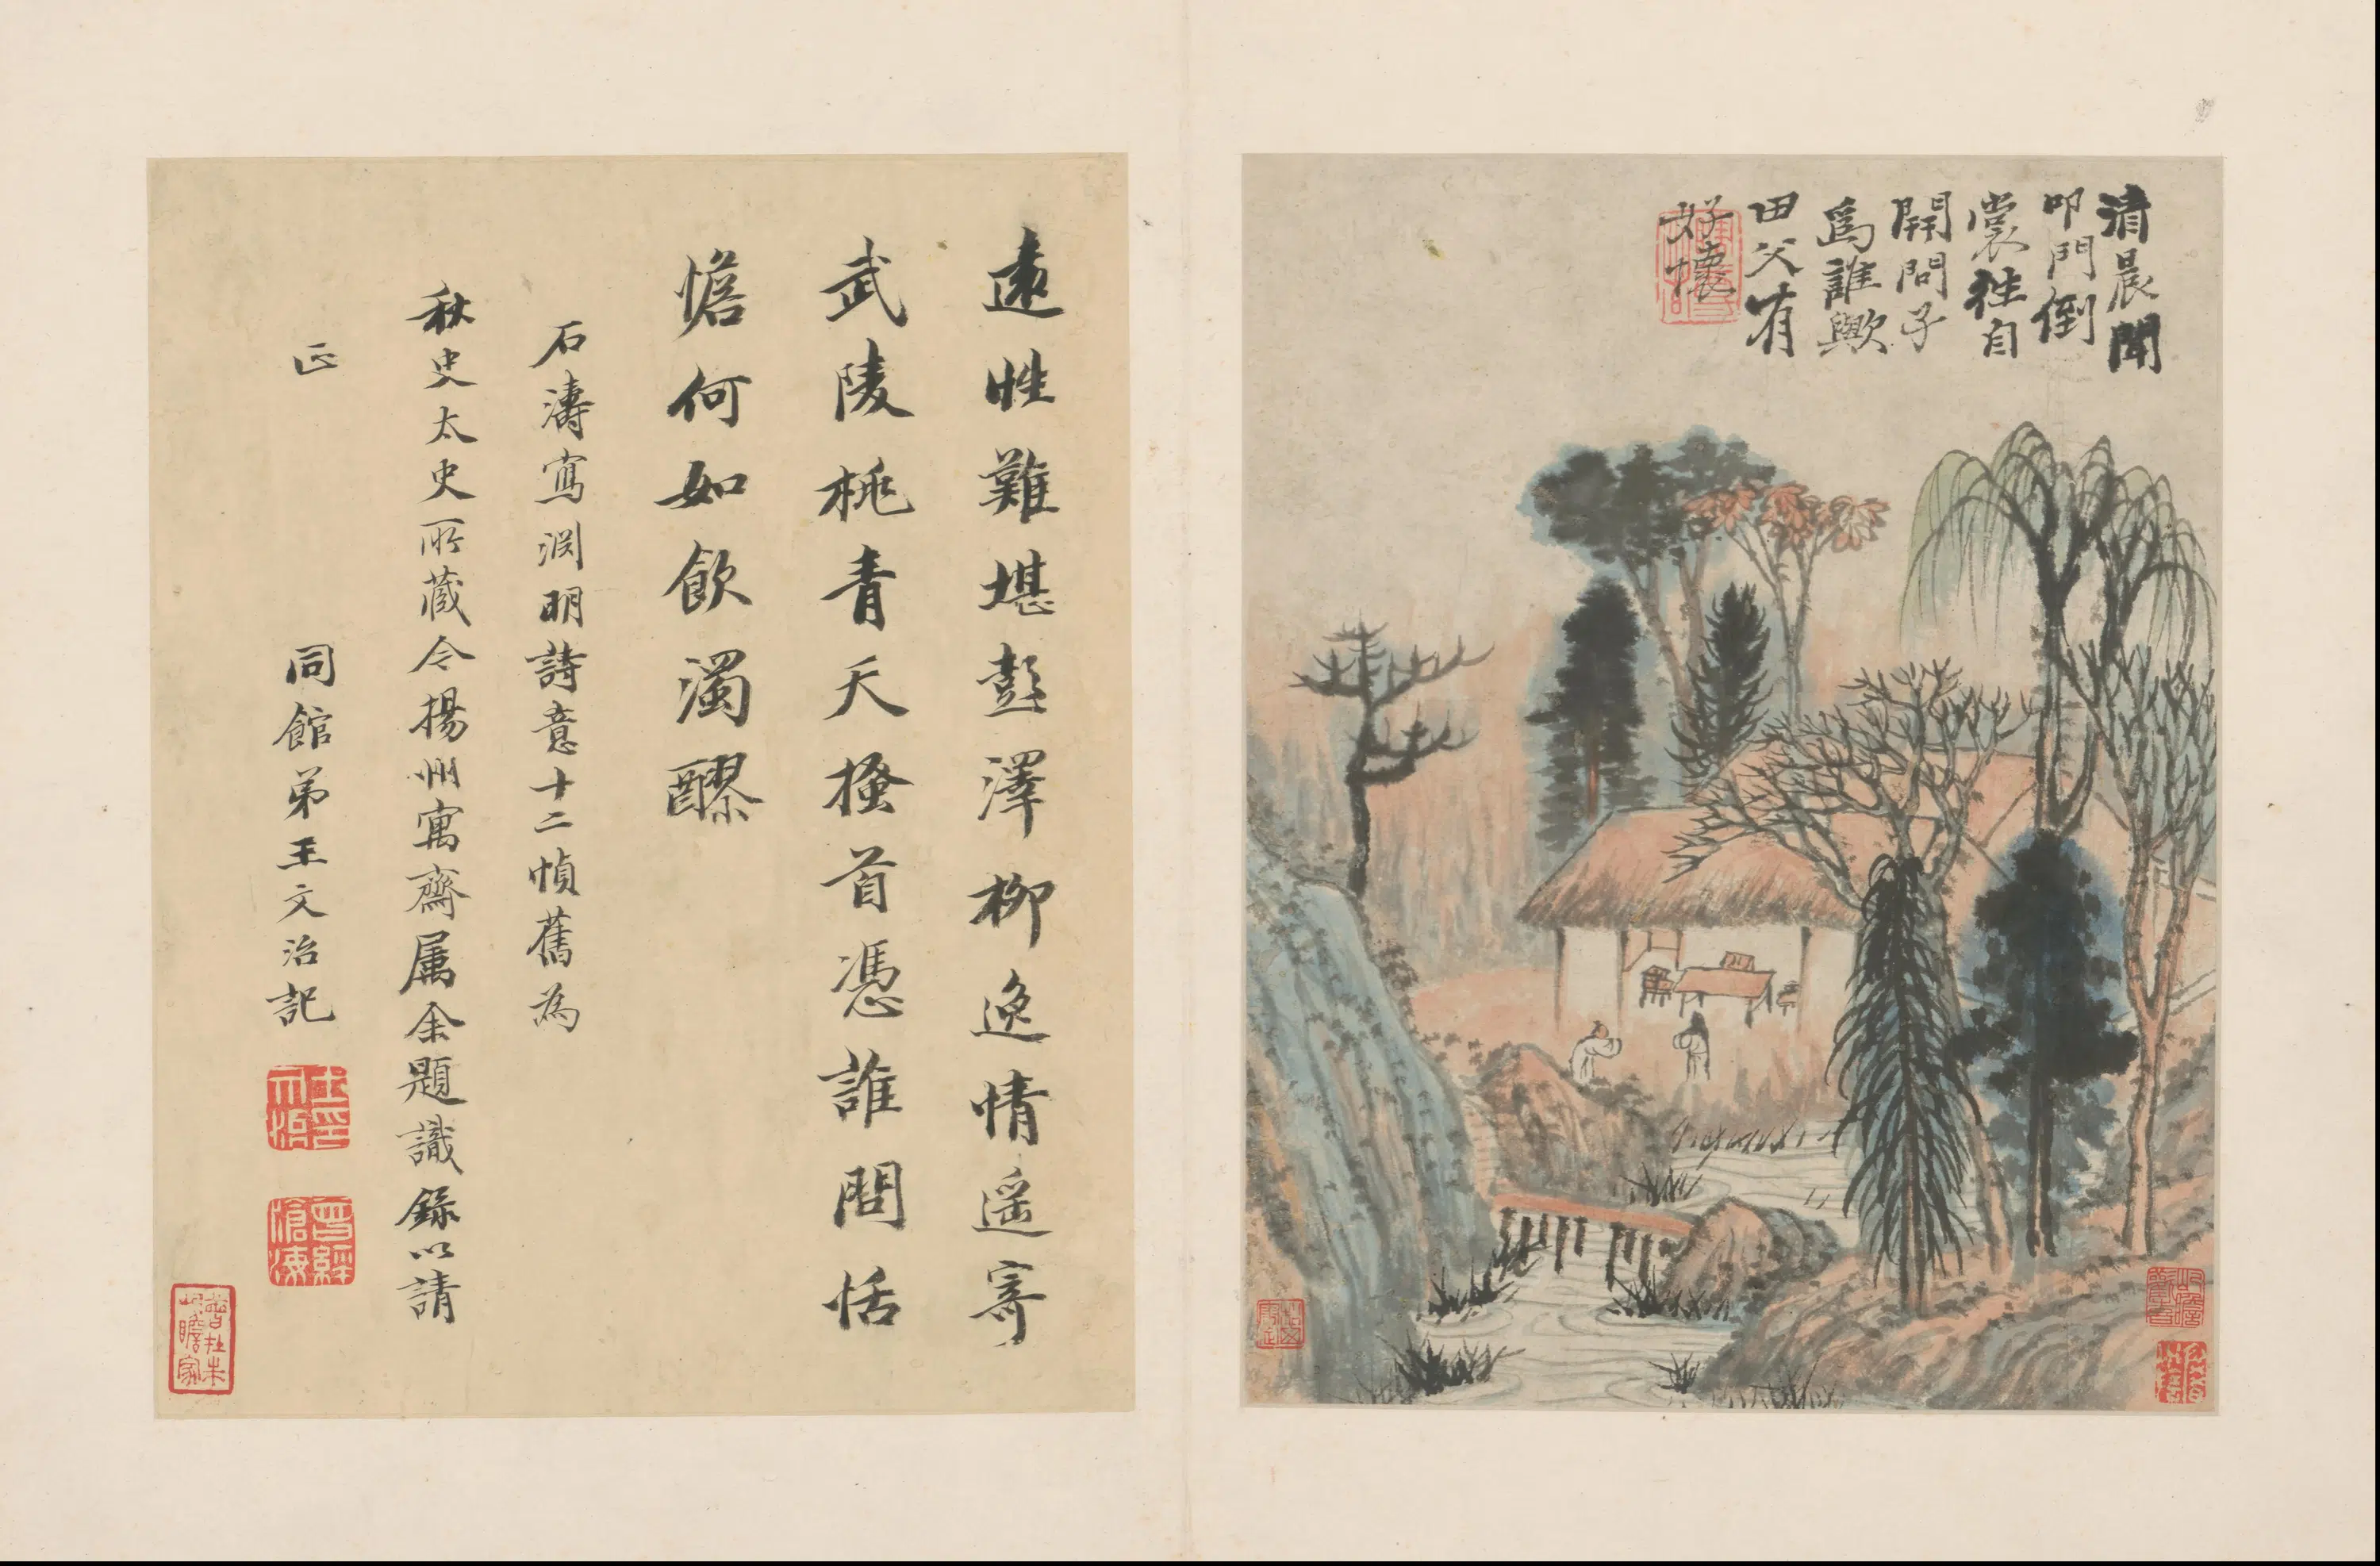 清晨聞
叩門倒
裳往自
開問子
爲誰歟
田父有
好懷
遠性難堪彭澤柳逸情遥寄
武陵桃青天搔首憑誰問恬
憺何如飲濁醪
石濤寫渊明詩意十二幀舊為
秋史太史所藏今揚州寓齋属余題識錄以請
正 同館弟王文治記
王文治印
曾經滄海